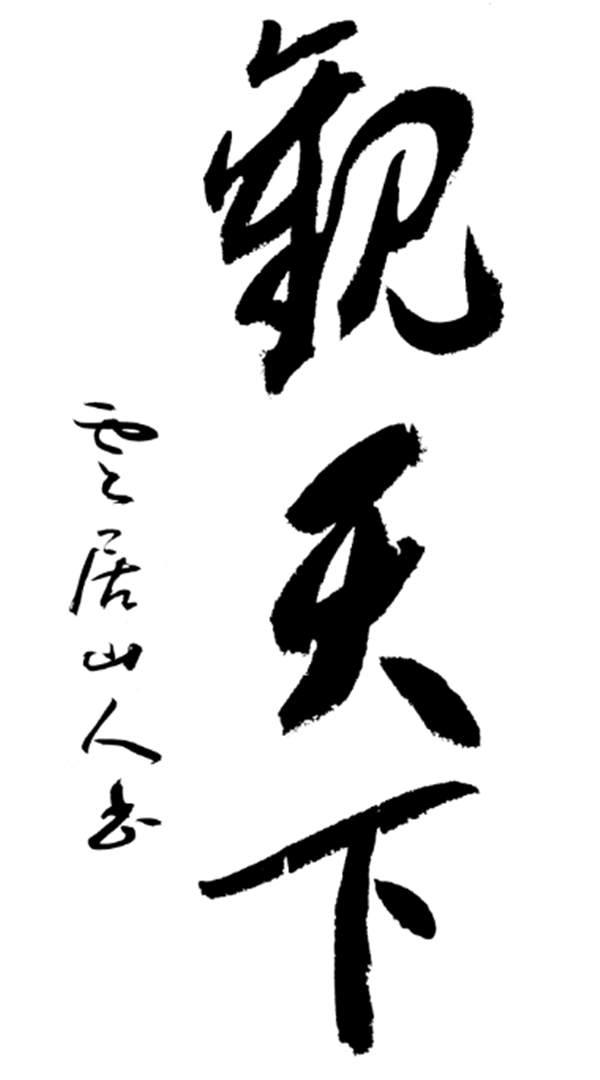 觀天下
雲居山人书